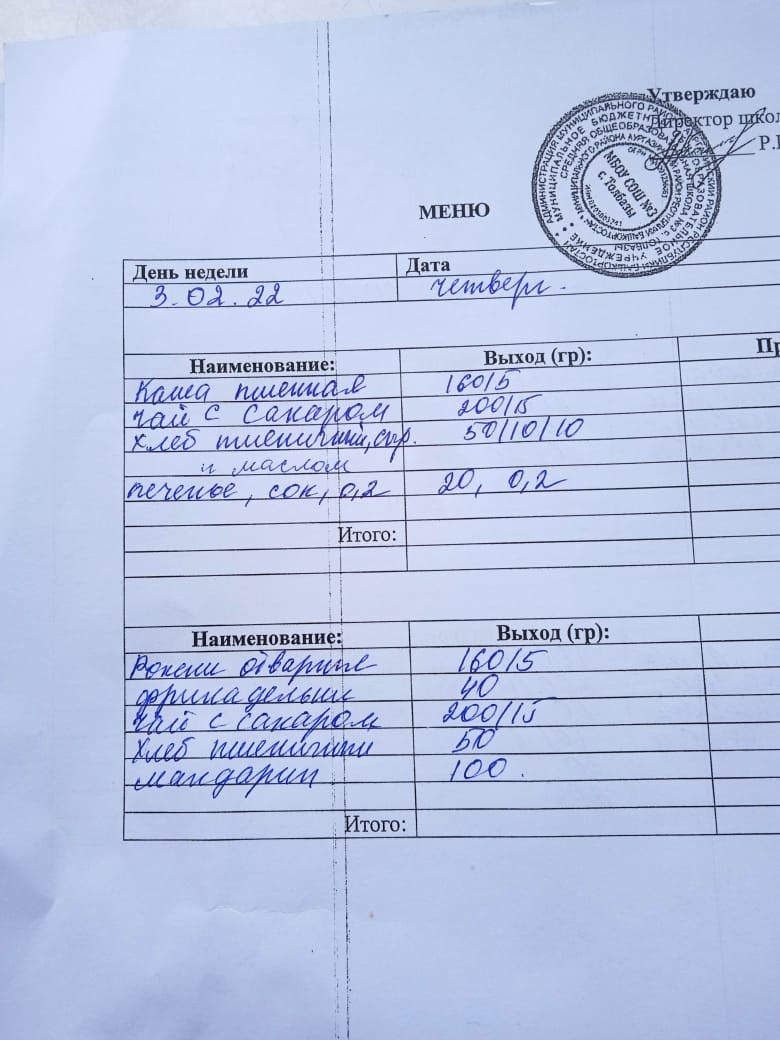 Утверждаю
Директор школ
Р.
МБОУ СОШ №3
с. Толбазы
МЕНЮ
День недели Дата
3.02.22 четверг.
Наименование: Выход (гр): Пр
Каша пшенная 160/5
чай с сахаром 200/15
хлеб пшеничный, сыр. 50/10/10
и маслом
печенье, сок, 0,2 20, 0,2
Итого:
Наименование: Выход (гр):
Рожки отварные 160/5
фрикадельки 40
чай с сахаром 200/15
хлеб пшеничный 50
мандарин 100.
Итого: